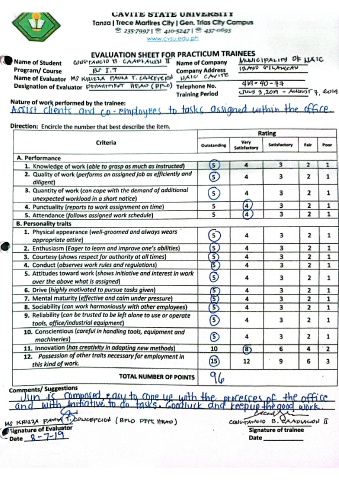 CAVITE STATE UNIVERSITY
Tanza | Trece Martires City | Gen. Trias City Campus
www.cvsu.edu.ph
EVALUATION SHEET FOR PRACTICUM TRAINEES
Name of Student Name of Company MUNICIPALITY OF NAIC
Program/ Course BS IT Company Address
Name of Evaluator NAIC CAVITE
Designation of Evaluator DEPARTMENT HEAD (BPLO) Telephone No.
Training Period JUNE 3, 2019 - AUGUST 7, 2019
Nature of work performed by the trainee:
Assist clients and co-employees to tasks assigned within the office
Direction: Encircle the number that best describe the item.
Criteria Rating
Outstanding Very Satisfactory Satisfactory Fair Poor
A. Performance
1. Knowledge of work (able to grasp as much as instructed) 5 4 3 2 1
2. Quality of work (performs an assigned job as efficiently and diligent) 5 4 3 2 1
3. Quantity of work (can cope with the demand of additional unexpected workload in a short notice) 5 4 3 2 1
4. Punctuality (reports to work assignment on time) 5 4 3 2 1
5. Attendance (follows assigned work schedule) 5 4 3 2 1
B. Personality traits
1. Physical appearance (well-groomed and always wears appropriate attire) 5 4 3 2 1
2. Enthusiasm (Eager to learn and improve one's abilities) 5 4 3 2 1
3. Courtesy (shows respect for authority at all times) 5 4 3 2 1
4. Conduct (observes work rules and regulations) 5 4 3 2 1
5. Attitudes toward work (shows initiative and interest in work over the above what is assigned) 5 4 3 2 1
6. Drive (highly motivated to pursue tasks given) 5 4 3 2 1
7. Mental maturity (effective and calm under pressure) 5 4 3 2 1
8. Sociability (can work harmoniously with other employees) 5 4 3 2 1
9. Reliability (can be trusted to be left alone to use or operate tools, office/industrial equipment) 5 4 3 2 1
10. Conscientious (careful in handling tools, equipment and machineries) 5 4 3 2 1
11. Innovation (has creativity in adapting new methods) 10 8 6 4 2
12. Possession of other traits necessary for employment in this kind of work. 15 12 9 6 3
TOTAL NUMBER OF POINTS 96
Comments/ Suggestions
Jun is composed, easy to cope up with the processes of the office
and with initiative to do tasks. Goodluck and keep up the good work.
Signature of Evaluator Signature of trainee
Date 8-7-19 Date